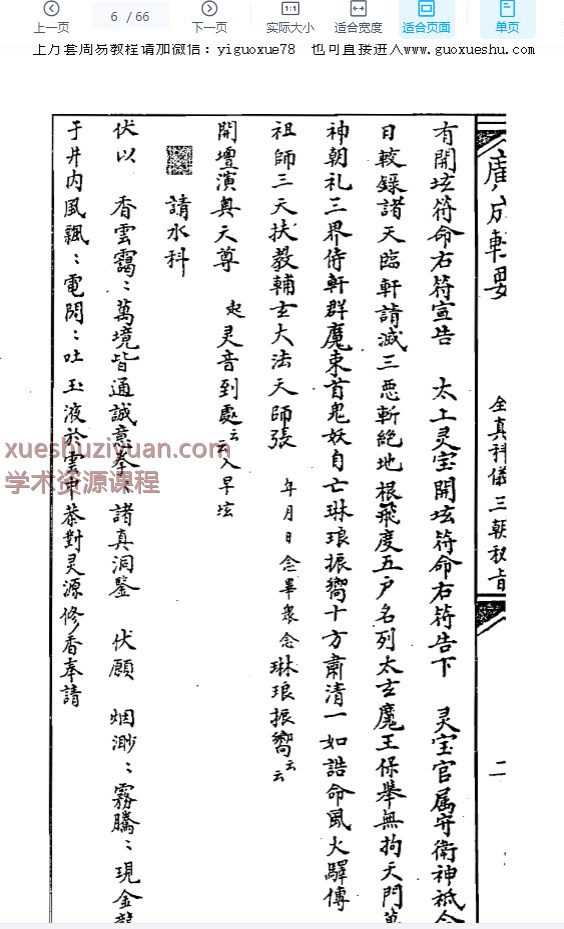 上一页
6 / 66
下一页
实际大小
适合宽度
适合页面
单页
上万套周易教程请加微信：yiguoxue78 也可直接进入www.guoxueshu.com
廣成軒要
全真科儀三朝秘旨
二
有開坛符命右符宣告 太上灵宝開坛符命右符告下 灵宝官属守衛神祇今
日較錄諸天臨軒請滅三惡斬絕地根飛度五户名列太玄魔王保舉無拘天門萬
神朝礼三界侍軒群魔束首鬼妖自亡琳琅振嚮十方肅清一如誥命風火驛傳
祖師三天扶教輔玄大法天師張 年月日念畢衆念琳琅振嚮云云
開壇演奥天尊 起灵音到處云云入早坛
請水科
伏以 香雲靄：萬境皆通誠意拳：諸真洞鑒 伏願 烟渺：霧騰：現金龍
于井内風飄：電閃：吐玉液於雲中恭對灵源修香奉請
xueshuziyuan.com
学术资源课程